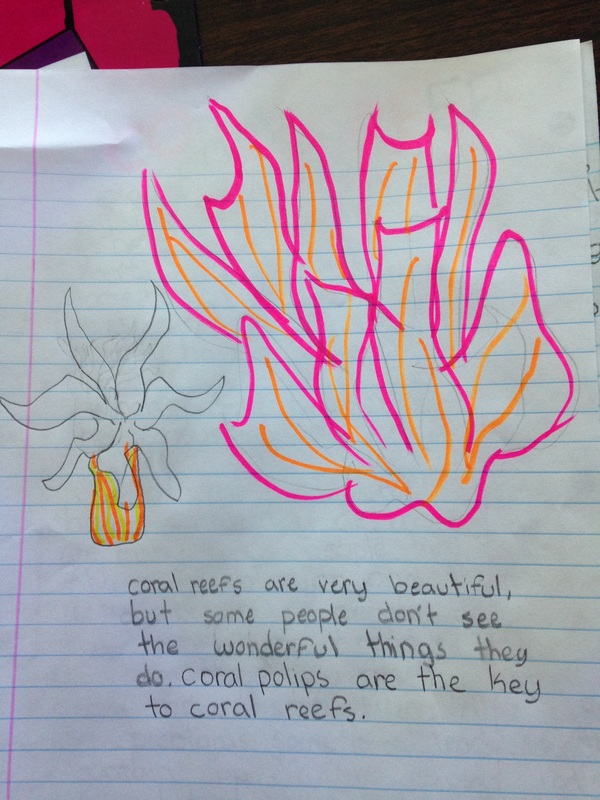 coral reefs are very beautiful,
but some people don't see
the wonderful things they
do. coral polips are the key
to coral reefs.